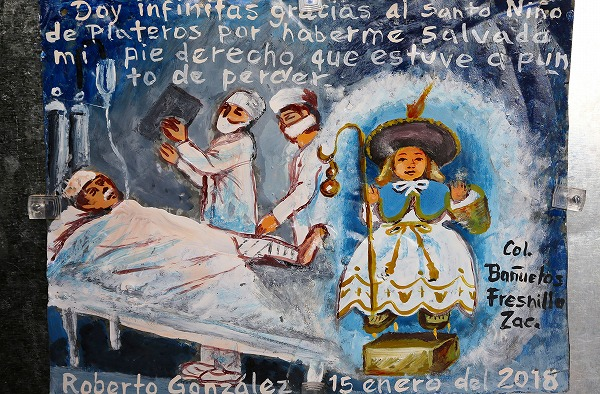 Doy infinitas gracias al santo Niño
de Plateros por haberme Salvado
mi pie derecho que estuve a pun
to de perder
Col.
Bañuelos
Fresnillo
Zac.
Roberto González 15 enero del 2018